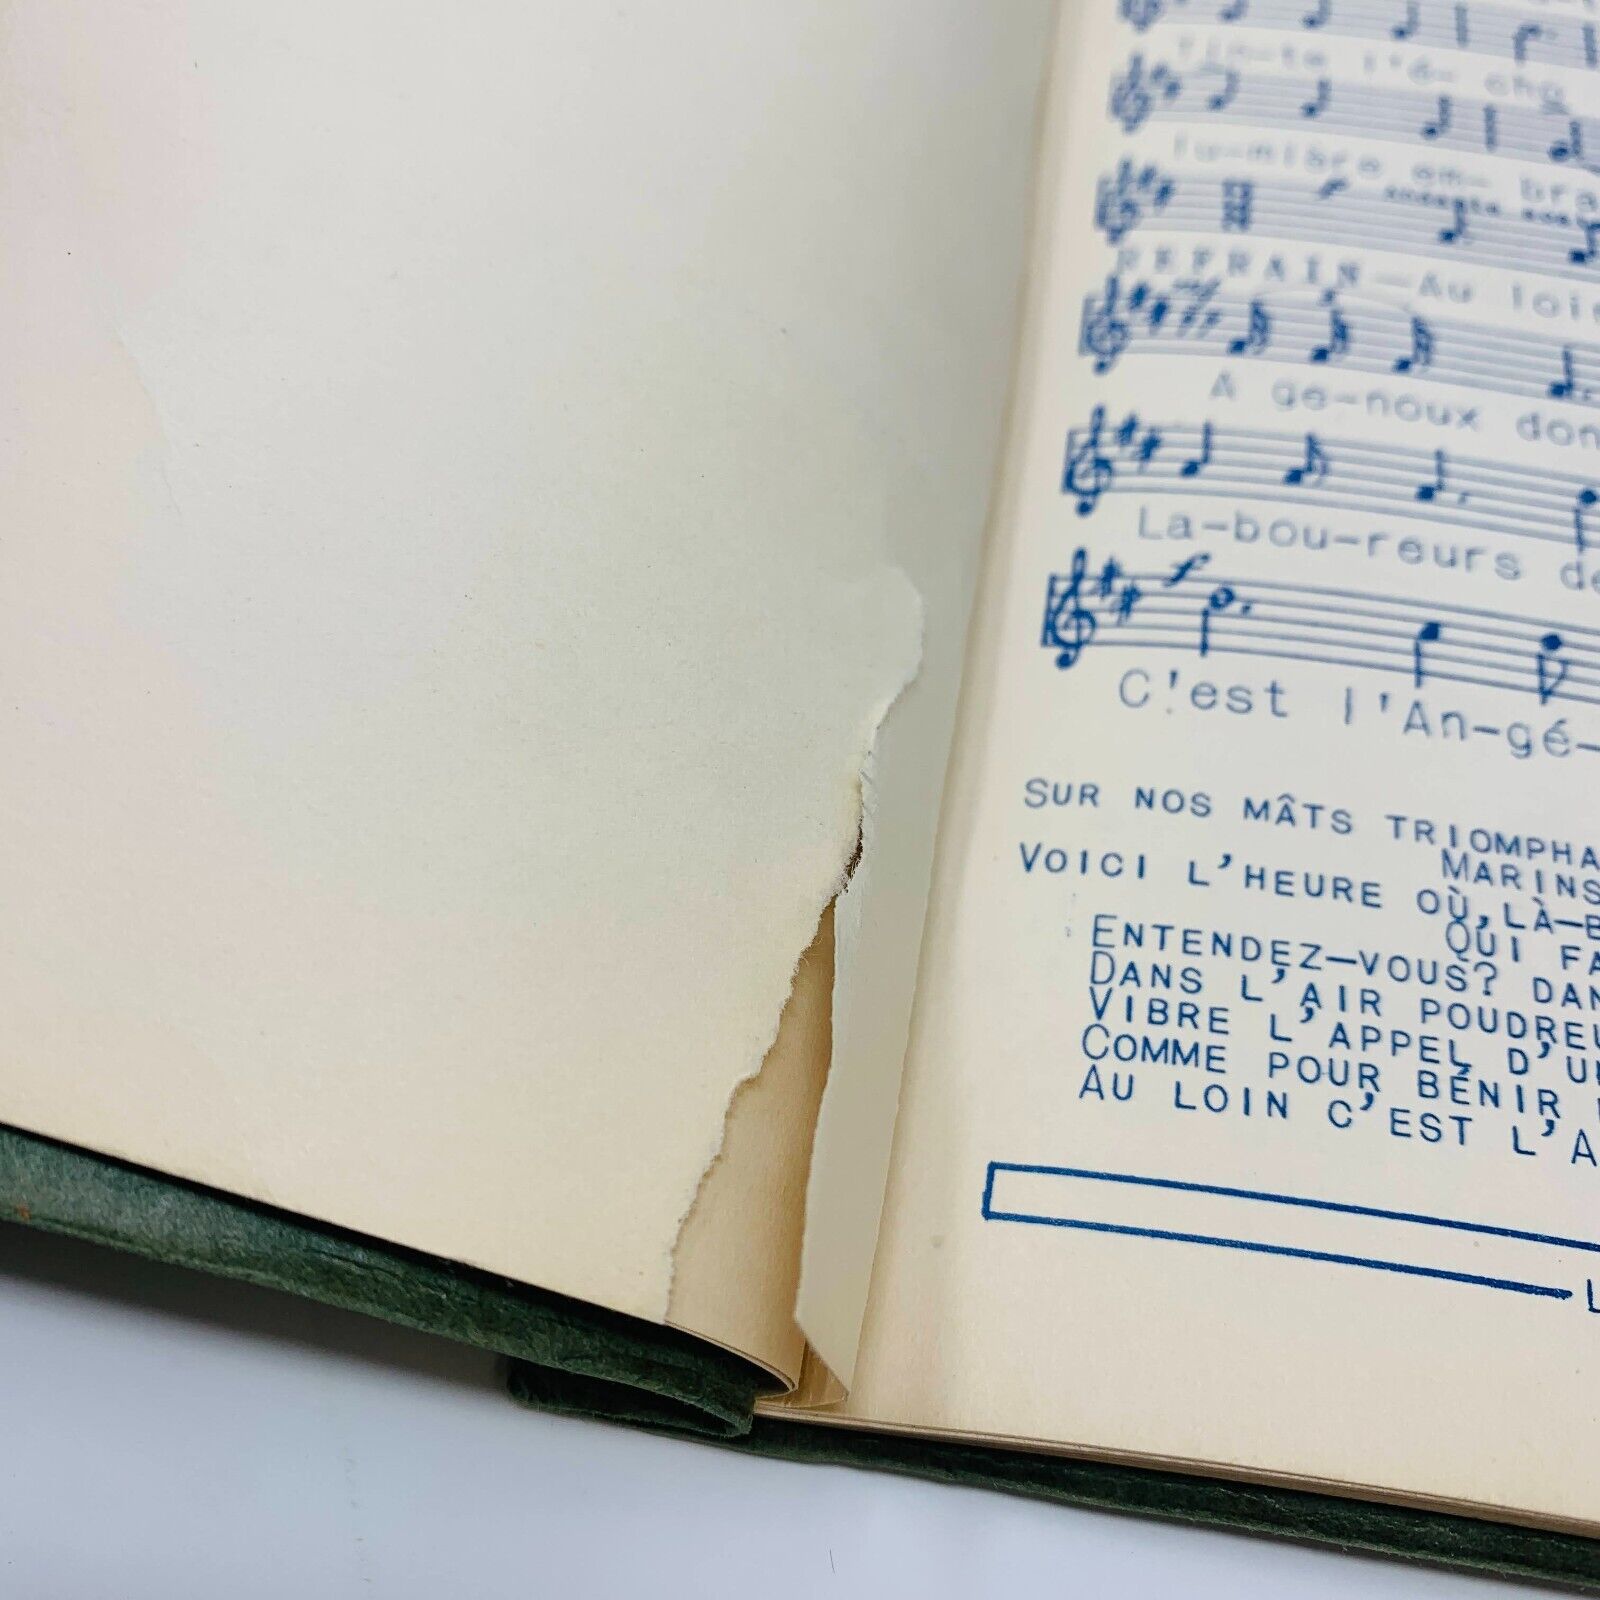 Tin-te l'é- cho
lu-mière em- bra
REFRAIN—Au loin
A ge-noux don
La-bou-reurs de
C'est l'An-gé-
SUR NOS MÂTS TRIOMPHA
MARINS
VOICI L'HEURE OÙ,LÀ-B
QUI FA
ENTENDEZ-VOUS? DAN
DANS L'AIR POUDREU
VIBRE L'APPEL D'UN
COMME POUR BÉNIR
AU LOIN C'EST L'A
L